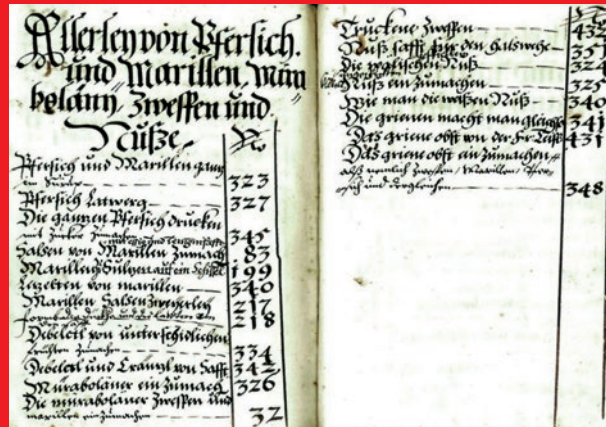 Allerley von Pfersich.
und Marillen, Mira
belany, Zweffen und
Nüße.
No
Pfersich und Marillen ganz
323
Pfersich Latwerg
327
Die ganzen Pfersich drucken
mit Zucker Zumachen
345
Salsen von Marillen Zumach
83
199
Lezelten von marillen
340
Marillen Salsen Zweyerley
217
218
von unterschidlichen
früchten Zumachen
334
und von Safft
342
Mirabolaner ein Zumach
326
Die mirabolaner Zweffen und
marillen ein Zumachen
32
Truckene Zweffen
432
Nuß safft für den halswehe
357
Die Nuß
324
Nuß ein Zumachen
325
Wie man die weißen Nuß
340
Die grienen macht man gleichfals
341
Das griene obst von der Fr:
431
Das griene obst ein Zumachen
alß nemlich Zweffen, Marillen, Pfer-
sich und dergleichen
348